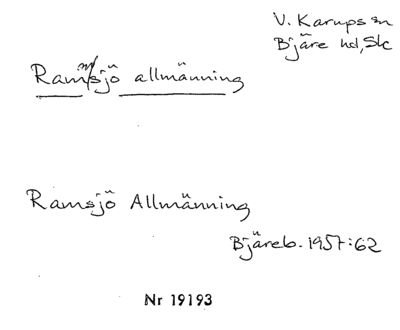 V. Karups sn
Bjäre hd, Sk
Ramsjö allmänning
Ramsjö Allmänning
Bjäreb. 1957:62
Nr 19193